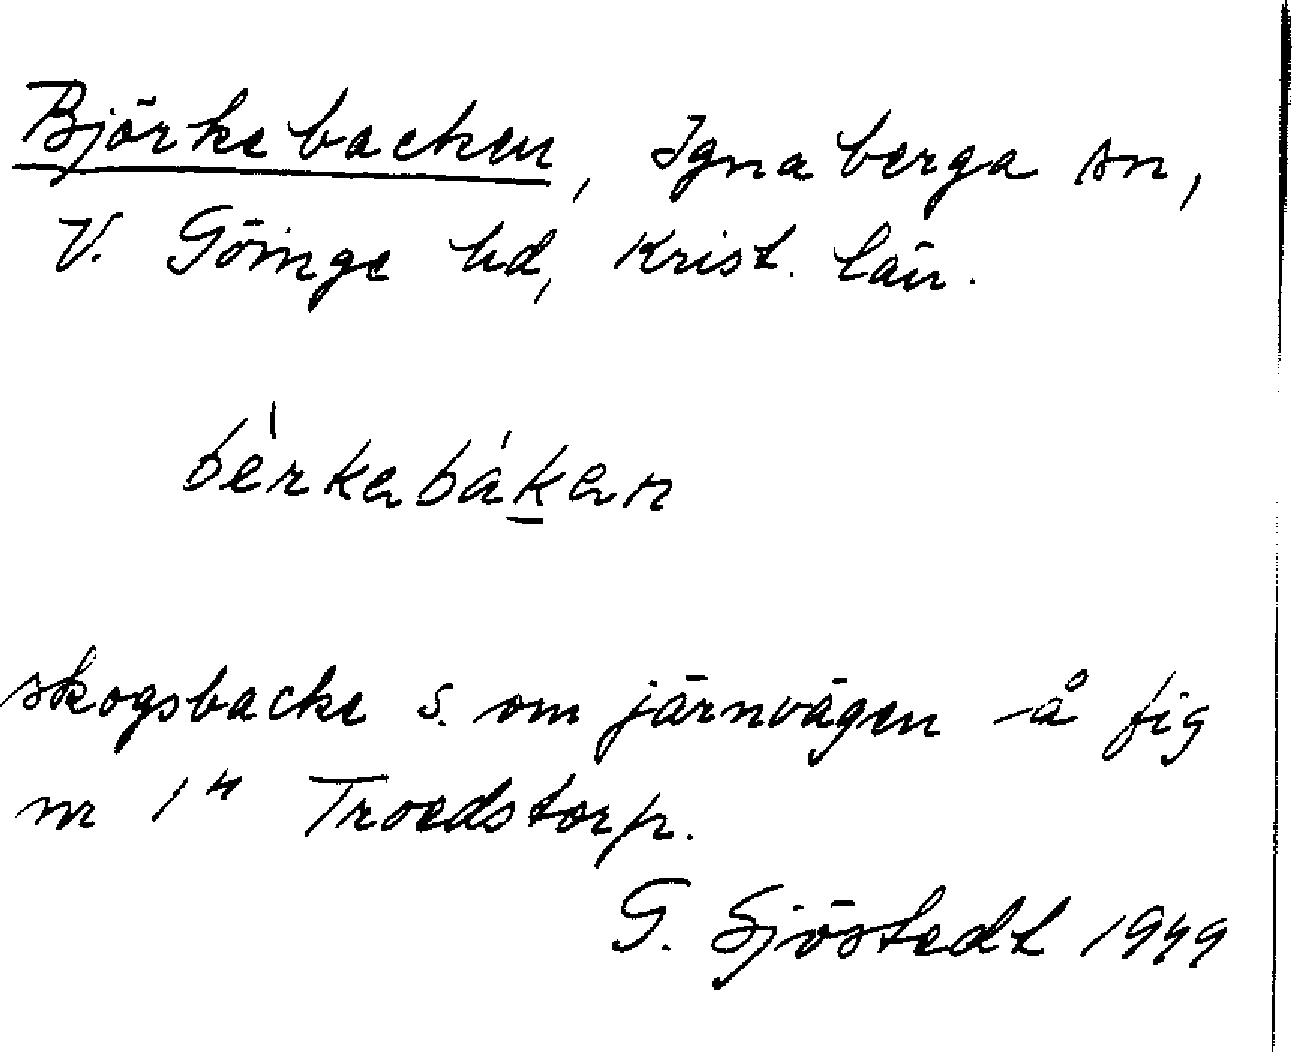 Björkebacken, Ignaberga sn,
V. Göinge hd, Krist. län.
bèrkebák̲en
skogsbacke s. om järnvägen å fig
nr 1⁴ Troedstorp.
G. Sjöstedt 1949